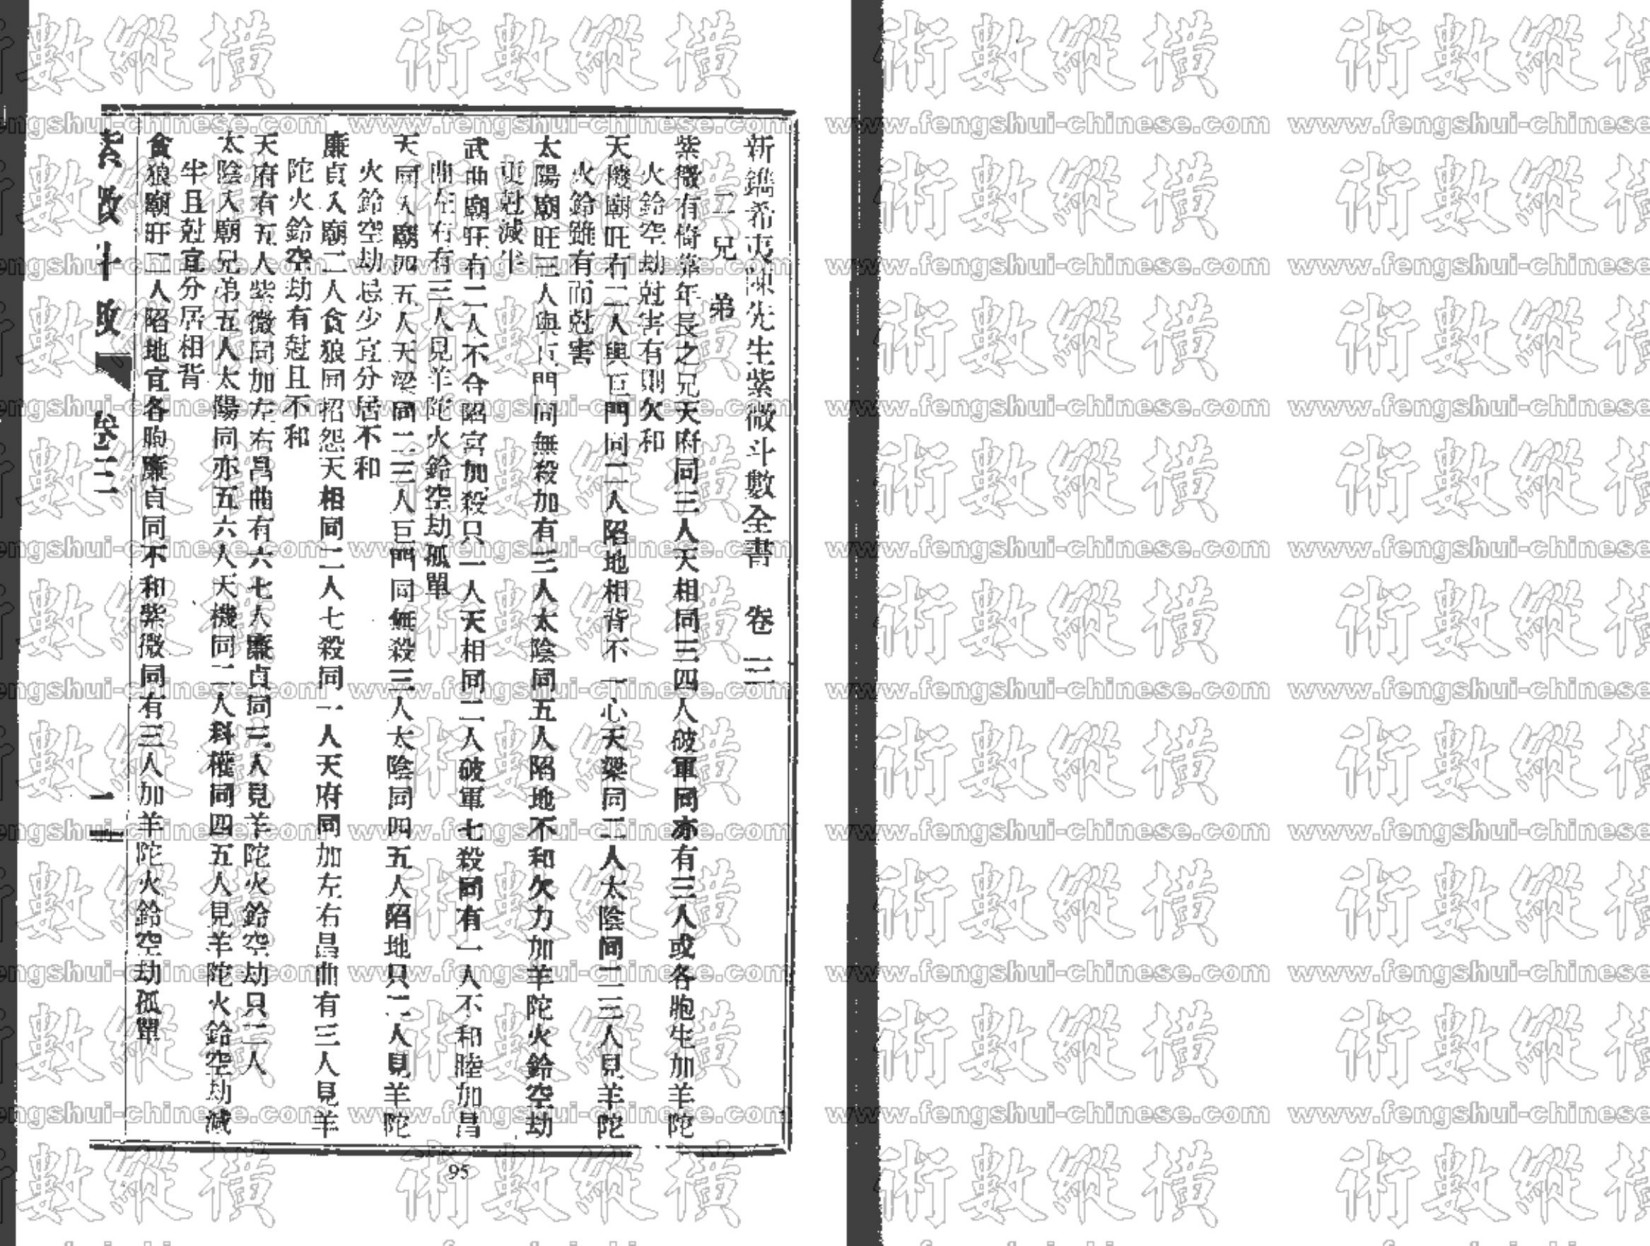 新鐫希夷陳先生紫微斗數全書　卷三
二兄　弟
紫微有倚靠年長之兄天府同三人天相同三四人破軍同亦有三人或各胞生加羊陀
火鈴空劫尅害有則欠和
天機廟旺有二人與巨門同二人陷地相背不一心天梁同二人太陰同二三人見羊陀
火鈴雖有而尅害
太陽廟旺三人與巨門同無殺加有三人太陰同五人陷地不和欠力加羊陀火鈴空劫
更尅減半
武曲廟旺有二人不合陷宮加殺只一人天相同二人破軍七殺同有一人不和睦加昌
曲左右有三人見羊陀火鈴空劫孤單
天同入廟四五人天梁同二三人巨門同無殺三人太陰同四五人陷地只二人見羊陀
火鈴空劫忌少宜分居不和
廉貞入廟二人貪狼同招怨天相同二人七殺同一人天府同加左右昌曲有三人見羊
陀火鈴空劫有尅且不和
天府有五人紫微同加左右昌曲有六七人廉貞同三人見羊陀火鈴空劫只二人
太陰入廟兄弟五人太陽同亦五六人天機同二人科權同四五人見羊陀火鈴空劫減
半且尅宜分居相背
貪狼廟旺二人陷地宜各胞廉貞同不和紫微同有三人加羊陀火鈴空劫孤單
卷三
一
95
術數縱橫
www.fengshui-chinese.com